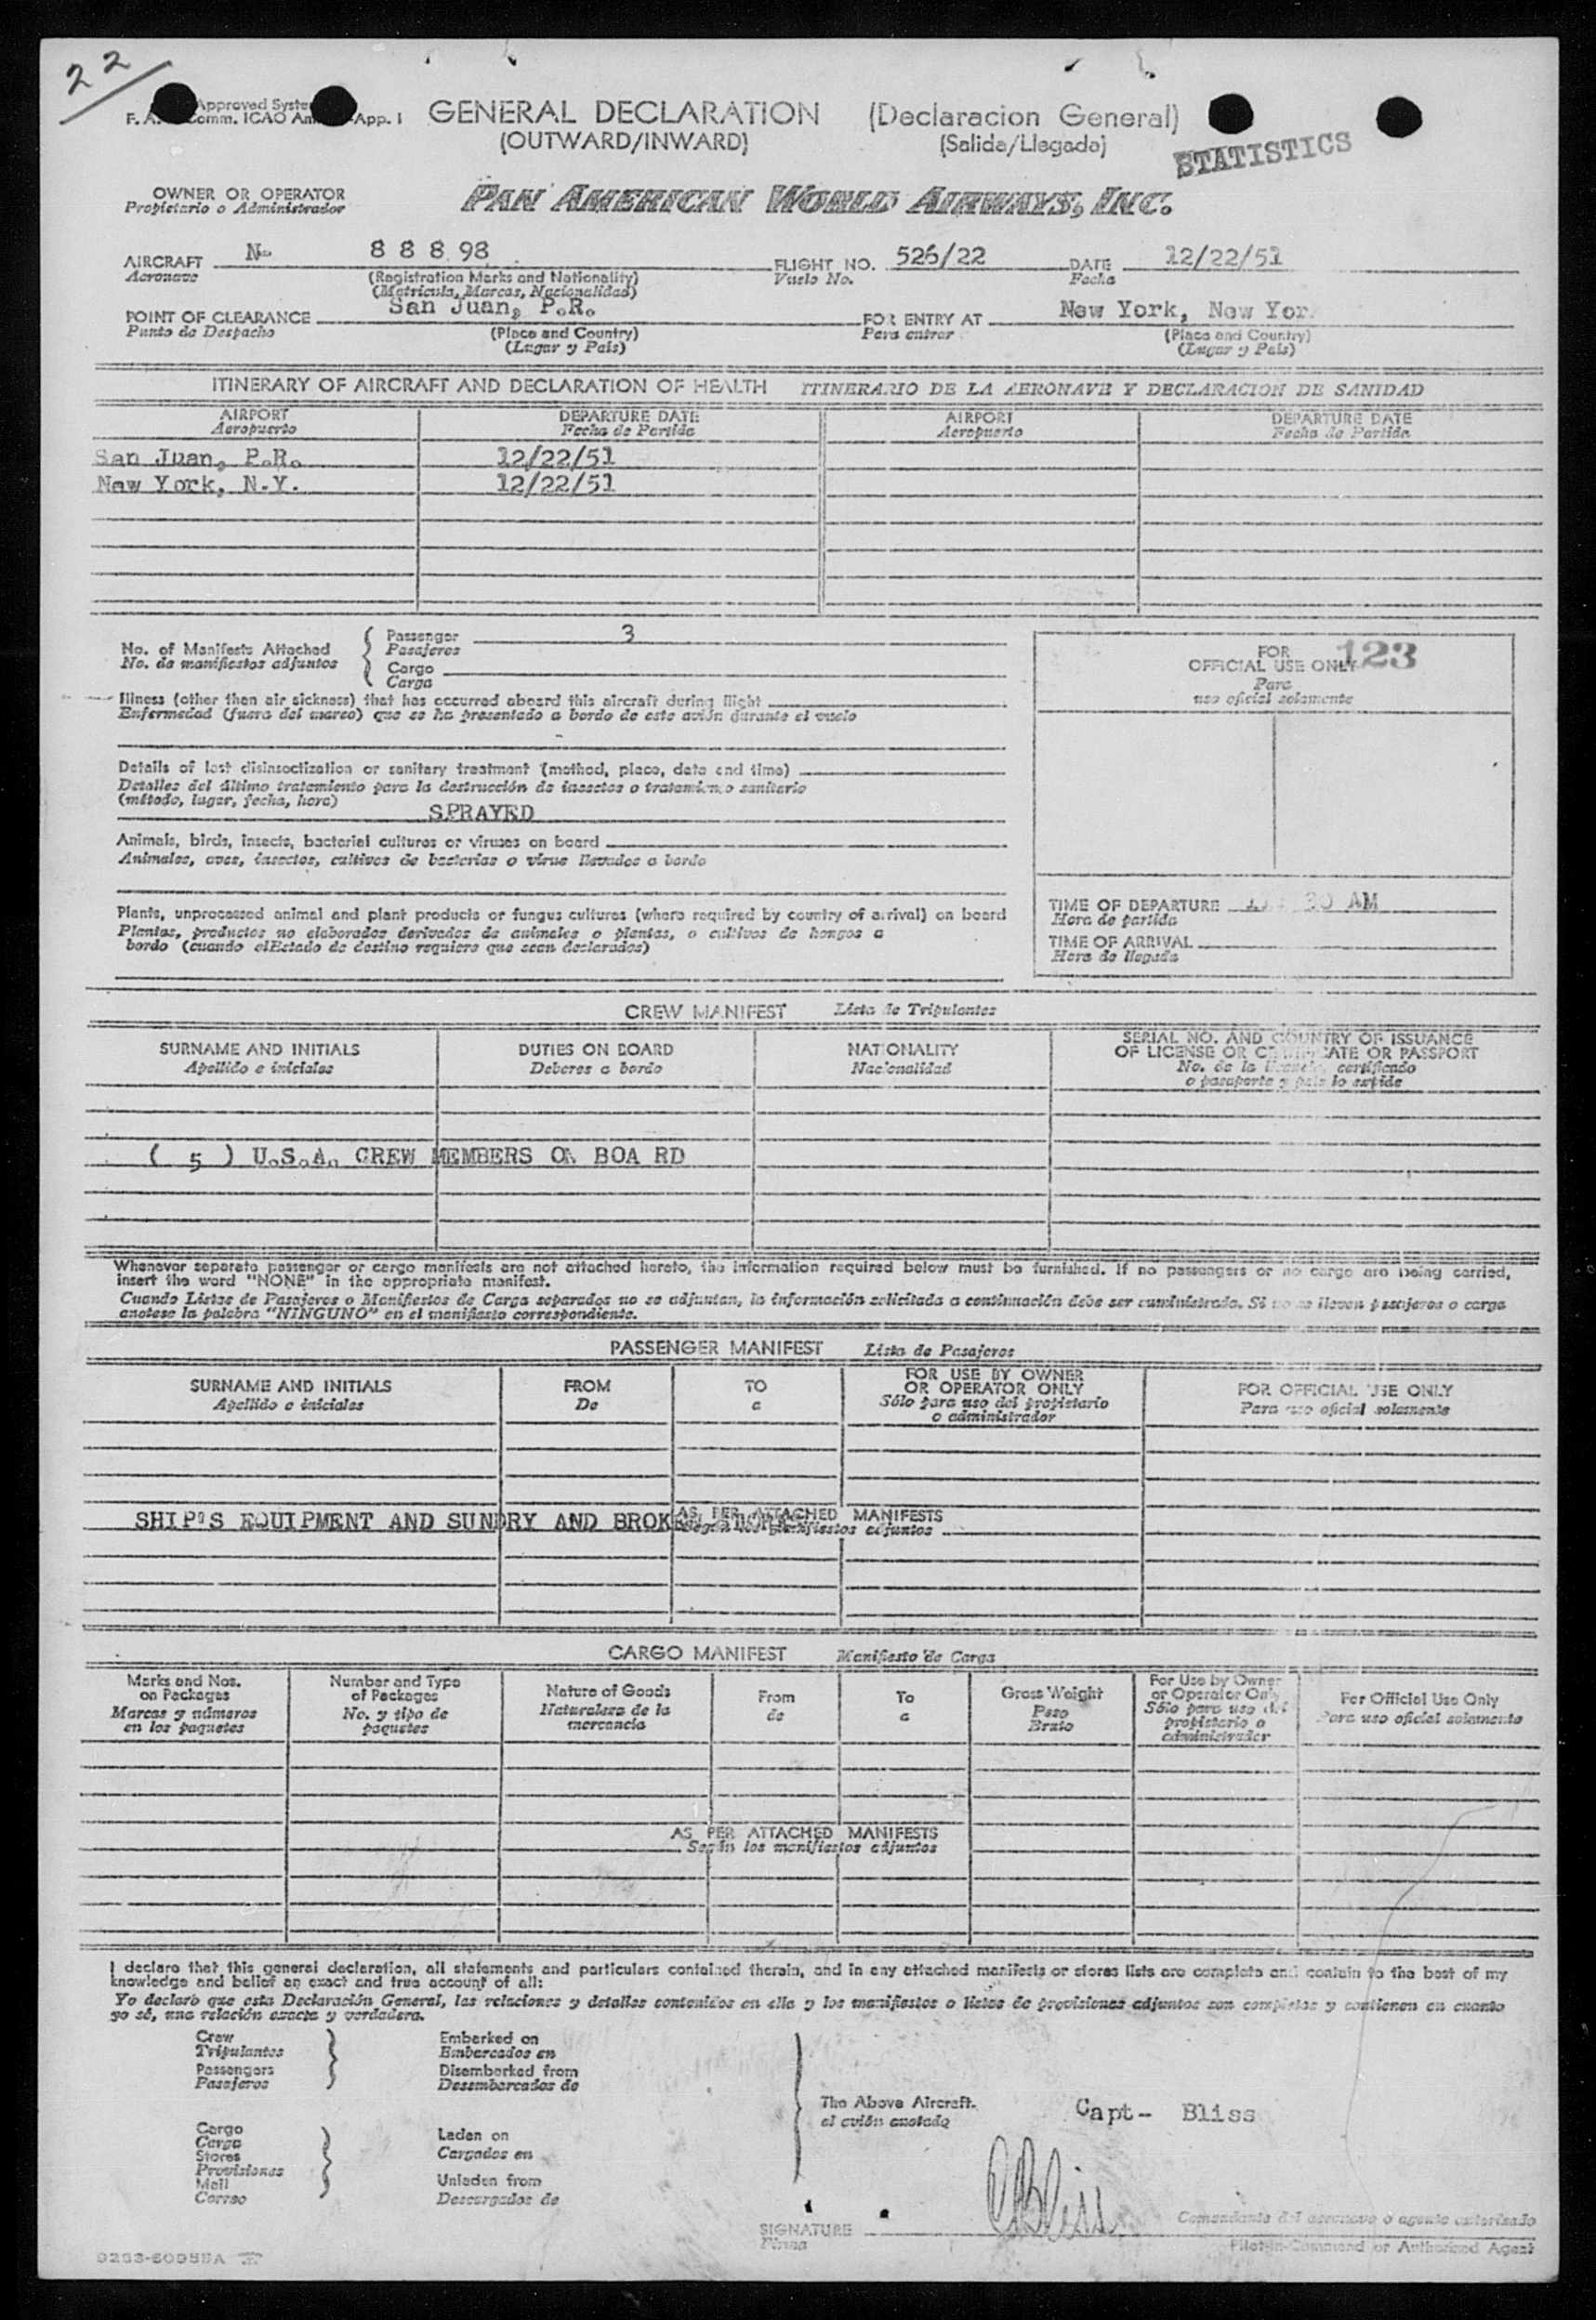 22
Approved System
F. A. Comm. ICAO An App. I
GENERAL DECLARATION (Declaracion General)
(OUTWARD/INWARD) (Salida/Llegada)
STATISTICS
OWNER OR OPERATOR
Propietario o Administrador
PAN AMERICAN WORLD AIRWAYS, INC.
AIRCRAFT N- 8 8 8 98 FLIGHT NO. 526/22 DATE 12/22/51
Aeronave (Registration Marks and Nationality) Vuelo No. Fecha
(Matricula, Marcas, Nacionalidad)
POINT OF CLEARANCE San Juan, P.R. FOR ENTRY AT New York, New Yor
Punto de Despacho (Place and Country) Para entrar (Place and Country)
(Lugar y Pais) (Lugar y Pais)
ITINERARY OF AIRCRAFT AND DECLARATION OF HEALTH ITINERARIO DE LA AERONAVE Y DECLARACION DE SANIDAD
AIRPORT DEPARTURE DATE AIRPORT DEPARTURE DATE
Aeropuerto Fecha de Partida Aeropuerto Fecha de Partida
San Juan, P.R. 12/22/51
New York, N.Y. 12/22/51
No. of Manifests Attached
No. de manifiestos adjuntos
Passenger 3
Pasajeros
Cargo
Carga
FOR
OFFICIAL USE ONLY 123
Para
uso oficial solamente
Illness (other than air sickness) that has occurred aboard this aircraft during flight
Enfermedad (fuera del mareo) que se ha presentado a bordo de este avión durante el vuelo
Details of last disinsectization or sanitary treatment (method, place, date and time)
Detalles del último tratamiento para la destrucción de insectos o tratamiento sanitario
(método, lugar, fecha, hora)
SPRAYED
Animals, birds, insects, bacterial cultures or viruses on board
Animales, aves, insectos, cultivos de bacterias o virus llevados a bordo
Plants, unprocessed animal and plant products or fungus cultures (where required by country of arrival) on board
Plantas, productos no elaborados derivados de animales o plantas, o cultivos de hongos a
bordo (cuando elEstado de destino requiere que sean declarados)
TIME OF DEPARTURE 30 AM
Hora de partida
TIME OF ARRIVAL
Hora de llegada
CREW MANIFEST Lista de Tripulantes
SURNAME AND INITIALS DUTIES ON BOARD NATIONALITY SERIAL NO. AND COUNTRY OF ISSUANCE
Apellido e iniciales Deberes a bordo Nacionalidad OF LICENSE OR CERTIFICATE OR PASSPORT
No. de la licencia, certificado
o pasaporte y pais lo expide
( 5 ) U.S.A. CREW MEMBERS ON BOA RD
Whenever separate passenger or cargo manifests are not attached hereto, the information required below must be furnished. If no passengers or no cargo are being carried,
insert the word "NONE" in the appropriate manifest.
Cuando Listas de Pasajeros o Manifiestos de Carga separados no se adjuntan, la información solicitada a continuación debe ser suministrada. Si no se llevan pasajeros o carga
anotese la palabra "NINGUNO" en el manifiesto correspondiente.
PASSENGER MANIFEST Lista de Pasajeros
SURNAME AND INITIALS FROM TO FOR USE BY OWNER FOR OFFICIAL USE ONLY
Apellido e iniciales De a OR OPERATOR ONLY Para uso oficial solamente
Sólo para uso del propietario
o administrador
SHIP'S EQUIPMENT AND SUNDRY AND BROKEN AS PER ATTACHED MANIFESTS
manifiestos adjuntos
CARGO MANIFEST Manifiesto de Carga
Marks and Nos. Number and Type Nature of Goods From To Gross Weight For Use by Owner For Official Use Only
on Packages of Packages Naturaleza de la de a Peso or Operator Only Para uso oficial solamente
Marcas y números No. y tipo de mercancía Bruto Sólo para uso del
en los paquetes paquetes propietario o
administrador
AS PER ATTACHED MANIFESTS
Según los manifiestos adjuntos
I declare that this general declaration, all statements and particulars contained therein, and in any attached manifests or stores lists are complete and contain to the best of my
knowledge and belief an exact and true account of all:
Yo declaro que esta Declaración General, las relaciones y detalles contenidos en ella y los manifiestos o listas de provisiones adjuntos son completos y contienen en cuanto
yo sé, una relación exacta y verdadera.
Crew Embarked on
Tripulantes Embarcados en
Passengers Disembarked from
Pasajeros Desembarcados de
The Above Aircraft.
el avión anotado
Capt- Bliss
Cargo Laden on
Carga Cargados en
Stores
Provisiones
Mail Unladen from
Correo Descargados de
SIGNATURE Bliss
Firma
Comandante del aeronave o agente autorizado
Pilot-in-Command or Authorized Agent